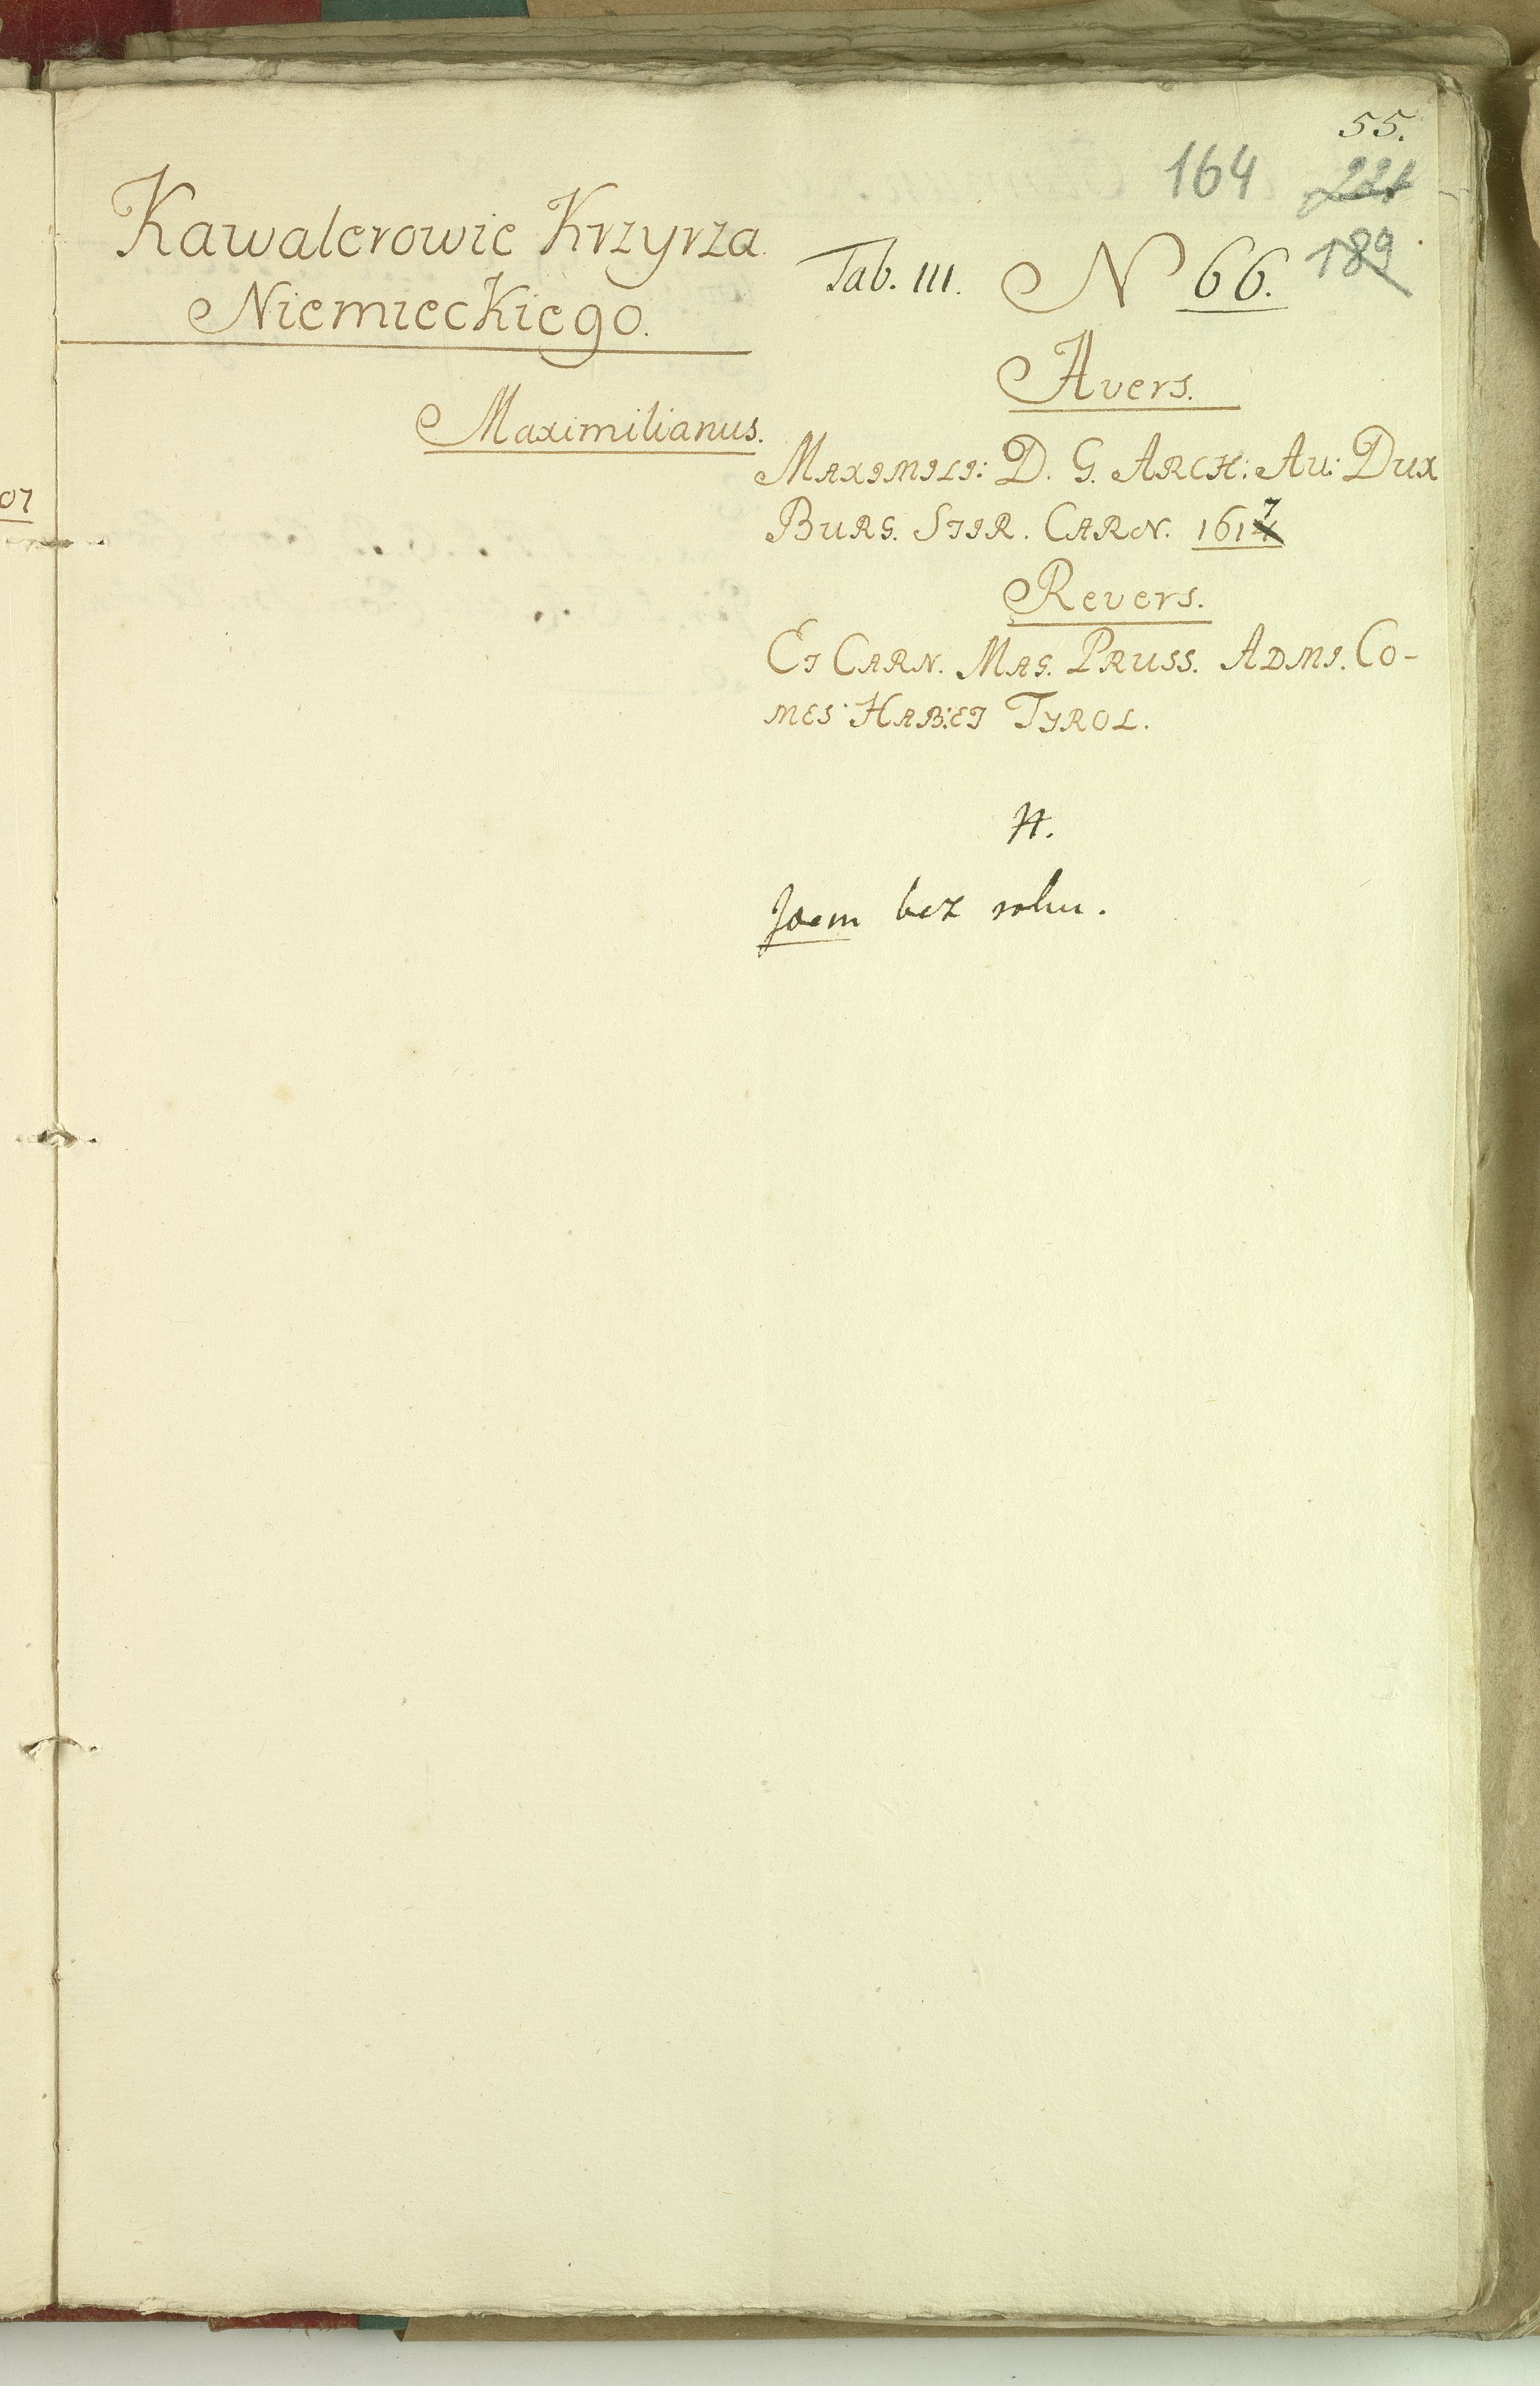 55.
164 221
189
Kawalerowie Krzyrza
Niemieckiego.
Maximilianus.
07
Tab. III. N 66.
Avers.
MAXIMILI: D. G. ARCH: AU: DUX
BURG. STIR. CARN. 1614 7
Revers.
ET CARN. MAG. PRUSS. ADMI. CO-
MES HAB: ET TYROL.
H.
Idem bez roku.